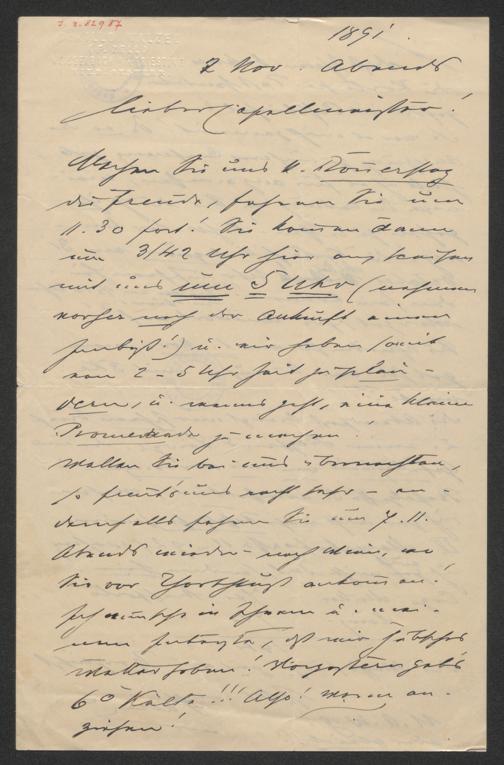 J. N. 62987
1891.
7 Nov. Abends
Lieber Capellmeister!
Machen Sie uns d. Donnerstag
die Freude, fahren Sie um
11.30 fort! Sie kommen dann
um 3/42 Uhr hier an, speisen
mit uns um 5 Uhr (nehmen
vorher nach der Ankunft einen
Imbiß!) u. wir haben somit
von 2 - 5 Uhr Zeit zu plau-
dern, u. wenns geht, eine kleine
Promenade zu machen!
Wollen Sie bei uns übernachten,
so freut's uns recht sehr - an-
dernfalls fahren Sie um 7.11.
Abends wieder nach Wien, wo
Sie vor Thorschluß ankommen!
Ich wünsche in Ihrem u. mei-
nem Interesse, daß wir hübsches
Wetter haben! Vorgestern gab's
6° Kälte!!! Also! warm an-
ziehen!